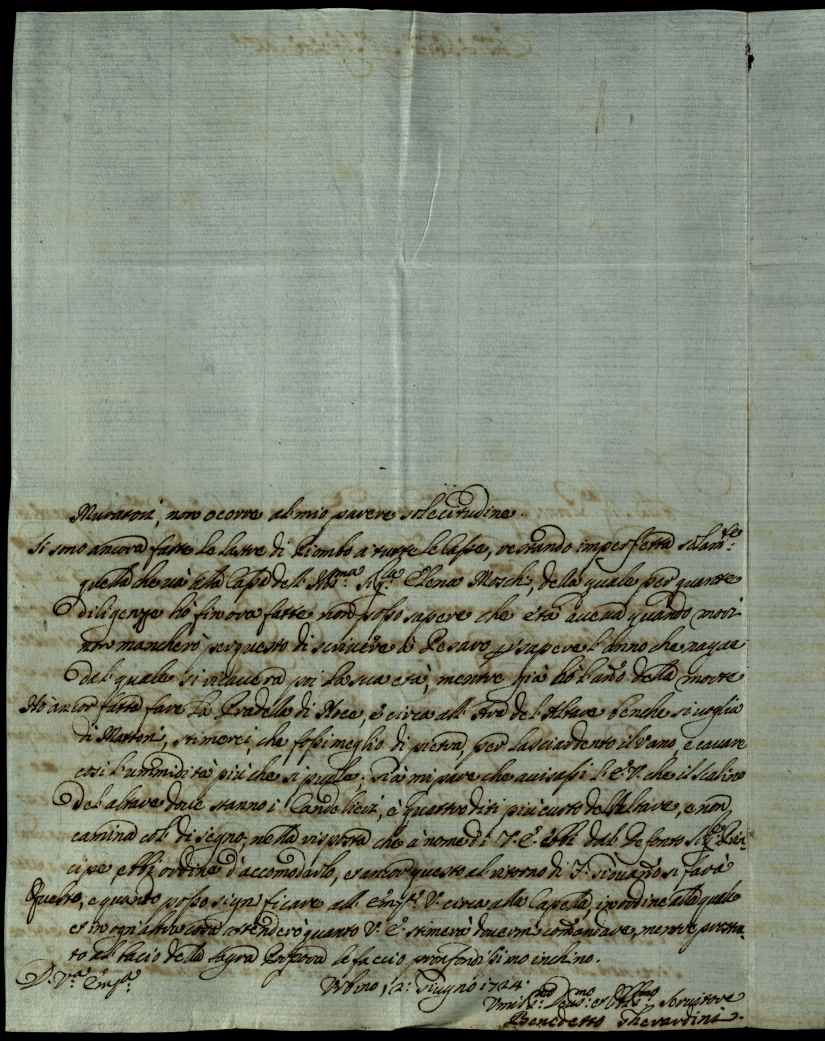 Muratori, non ocorre al mio parere solecitudine.
Si sono ancora fatte le lastre di Piombo a tutte le Casse, restando imperfetta solam.te
quella che và alla Cassa dell' Ill.ma Sig.ra Elena Mosch, della quale per quante
diligenze hò finora fatte non posso sapere che età avea quando morì
non mancherò per questo di scrivere à Pesaro p sapere l'anno che nacque
dal quale si ricaverà poi la sua età, mentre già hò l'año della morte
Hò ancor fatta fare la Pradella di Noce, e circa all' Ara del Altare benche si voglia
di Mattoni, stimerei che fossi meglio di pietra, per lasciar dento il vano, e cavare
cosi l'ummidità più che si puole. Già mi pare che avisassi l' E. V. che il Scalino
del altare dove stanno i Candelieri, è quattro diti più custo dell'altare, e non
camina col disegno, nella risposta che à nome di V. E. ebbi dal defonto Sig.re
cipe, ebbi ordine d'accomodarlo, e ancor questo al ritorno di si farà
Questo, e quanto posso significare all' Em.za V. circa alla Capella, in ordine alla quale
et in ogn'altra cosa attenderò quanto V. E. stimerà dovermi comendare, mentre prostra-
to al bacio della sagra Porpora le faccio profondissimo inchino.
D. V.ra Em.za
Urbino, 2: Giugno 1724.
Umiliss.mo Devo.mo et Obblig.mo Servitore
Benedetto Gherardini.